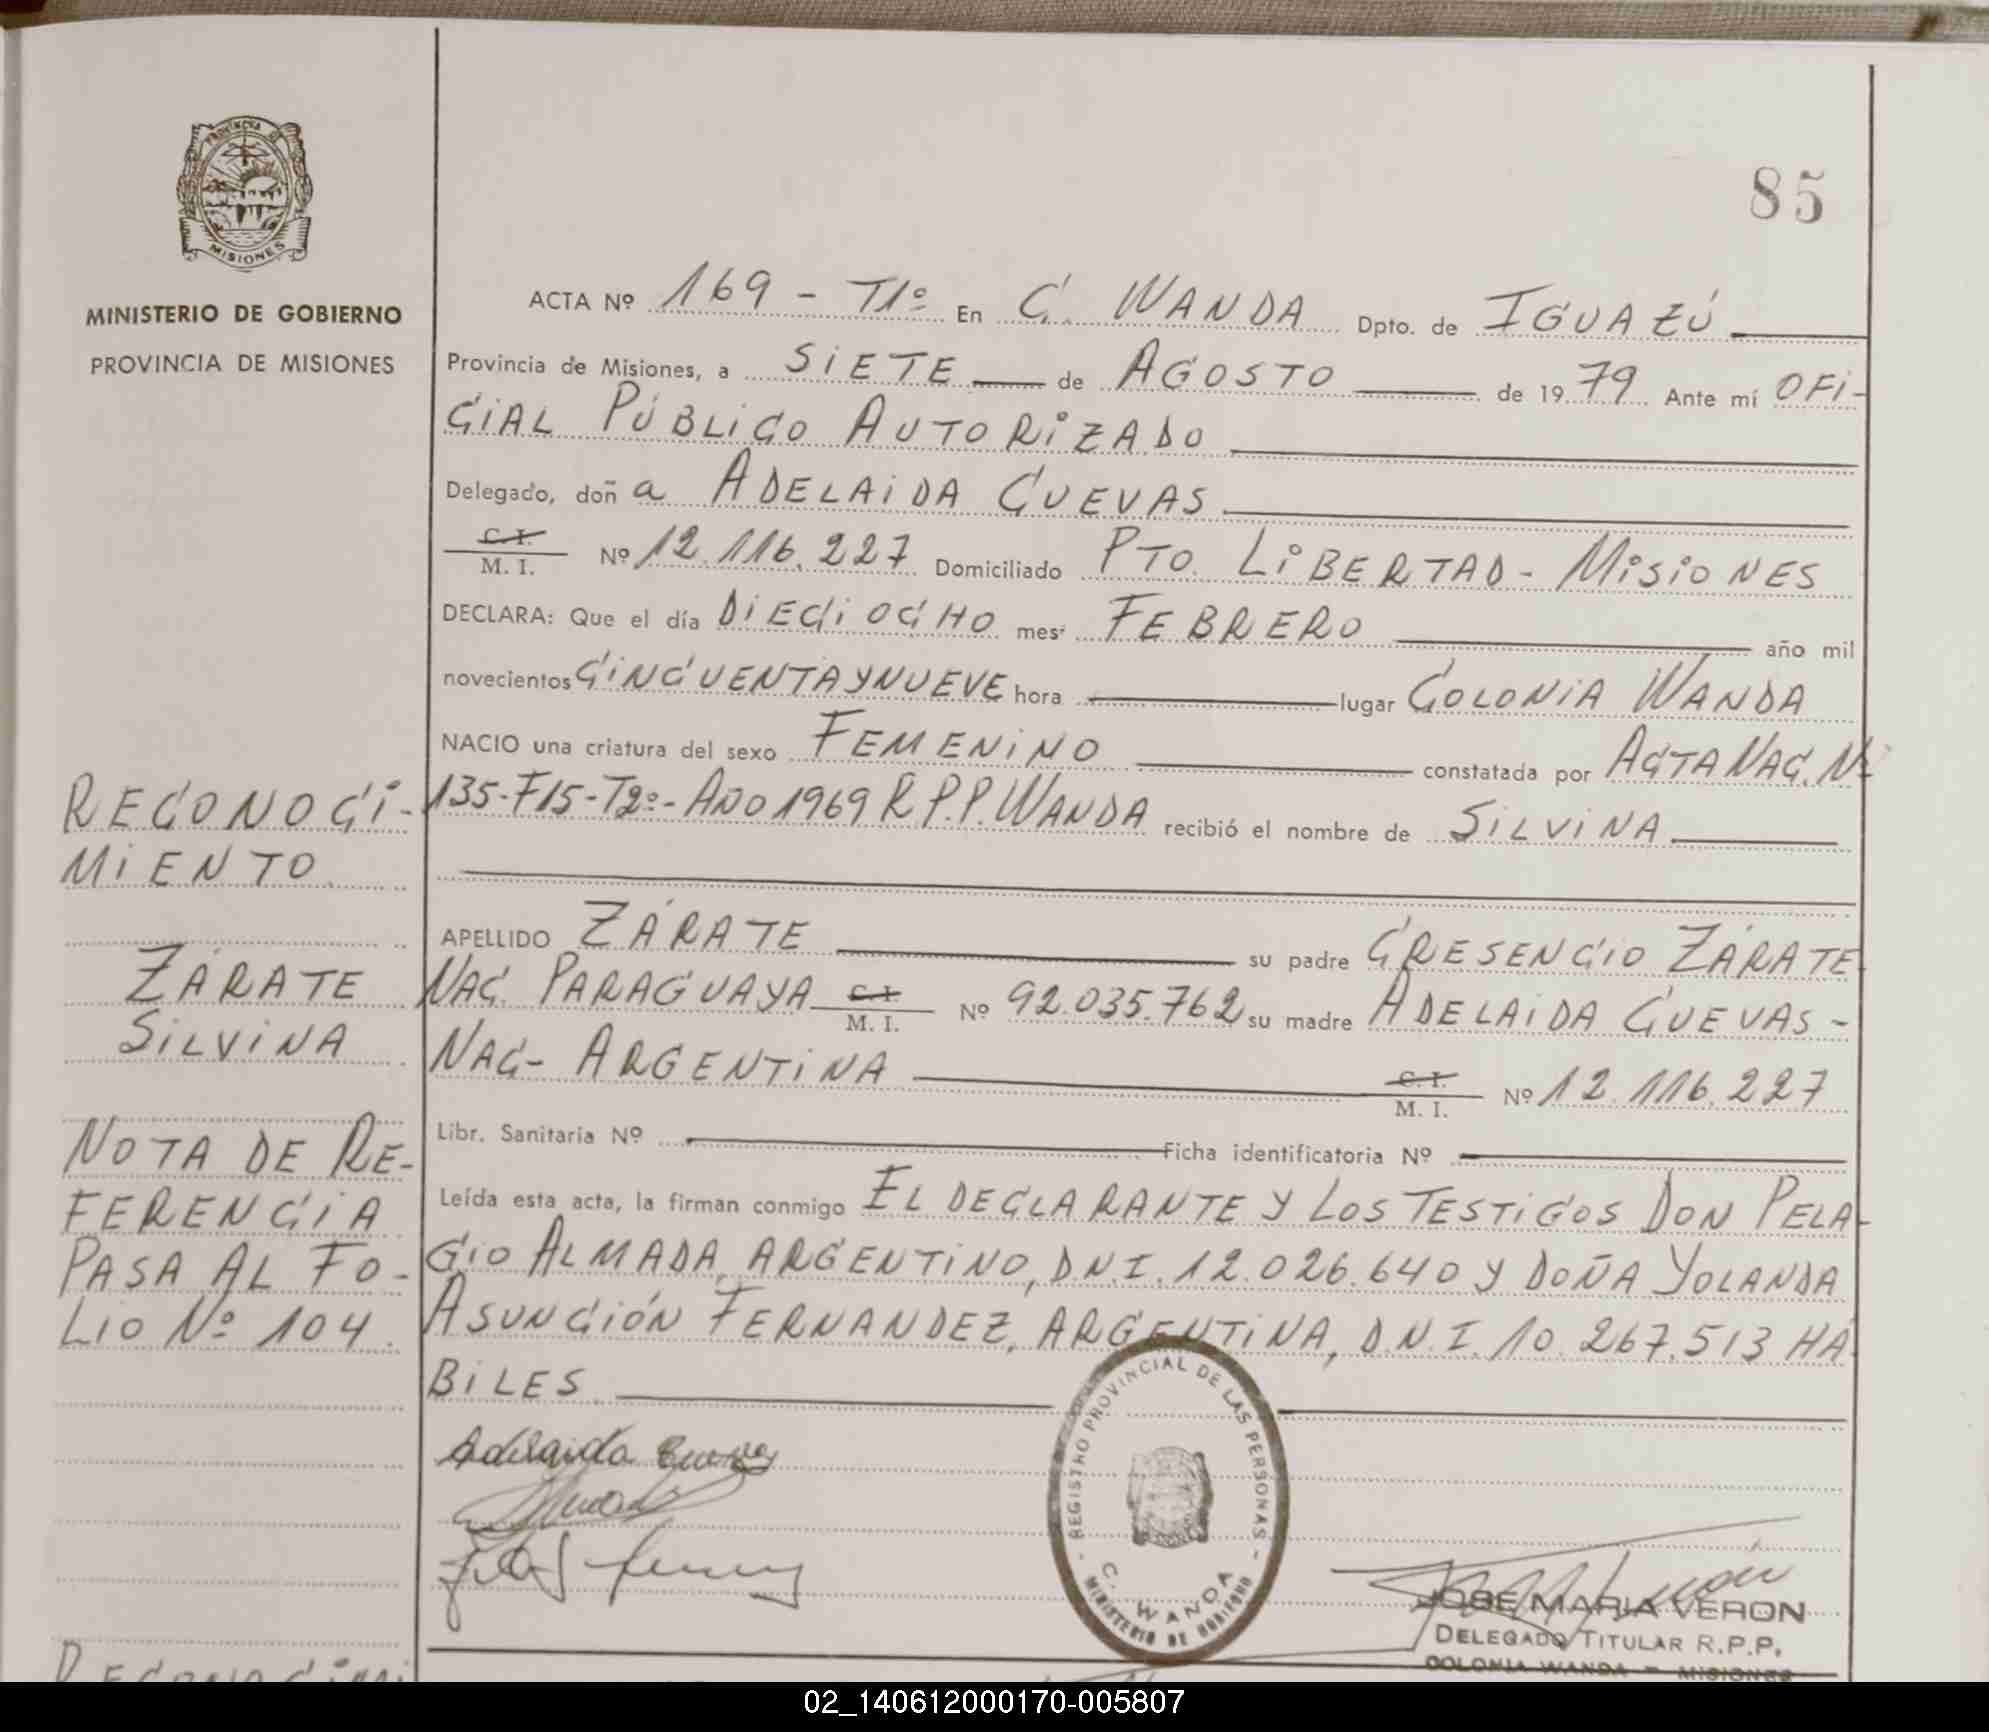 85
PROVINCIA DE
MISIONES
MINISTERIO DE GOBIERNO
PROVINCIA DE MISIONES
ACTA Nº 169 - T1º En C. WANDA Dpto. de IGUAZÚ
Provincia de Misiones, a SIETE de AGOSTO de 19 79 Ante mí OFI-
CIAL PÚBLICO AUTORIZADO
Delegado, doñ a ADELAIDA CUEVAS
C.I.
M. I. Nº 12.116.227 Domiciliado PTO. LIBERTAD - MISIONES
DECLARA: Que el día DIECIOCHO mes FEBRERO año mil
novecientos CINCUENTAYNUEVE hora lugar COLONIA WANDA
NACIO una criatura del sexo FEMENINO constatada por ACTA NAC. Nº
135-F15-T2º-AÑO 1969 R.P.P. WANDA recibió el nombre de SILVINA
APELLIDO ZÁRATE su padre CRESENCIO ZÁRATE
NAC. PARAGUAYA C.I.
M. I. Nº 92.035.762 su madre ADELAIDA CUEVAS -
NAC- ARGENTINA C.I.
M. I. Nº 12.116.227
Libr. Sanitaria Nº Ficha identificatoria Nº
Leída esta acta, la firman conmigo EL DECLARANTE Y LOS TESTIGOS DON PELA-
GIO ALMADA, ARGENTINO, D.N.I. 12.026.640 Y DOÑA YOLANDA
ASUNCIÓN FERNANDEZ, ARGENTINA, D.N.I. 10.267.513 HÁ-
BILES
RECONOCI-
MIENTO
ZÁRATE
SILVINA
NOTA DE RE-
FERENCIA
PASA AL FO-
LIO Nº 104
Adelaida Cuevas
REGISTRO PROVINCIAL DE LAS PERSONAS
C. WANDA
MINISTERIO DE GOBIERNO
JOSE MARIA VERON
DELEGADO TITULAR R.P.P.
COLONIA WANDA - MISIONES
RECONOCIMI
02_140612000170-005807